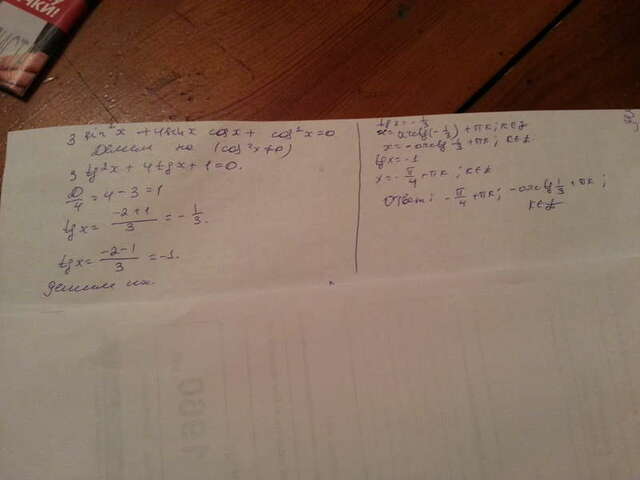 3 sin²x + 4 sin x cos x + cos²x = 0
Делим на (cos²x ≠ 0)
3 tg²x + 4 tg x + 1 = 0.
D/4 = 4 - 3 = 1
tg x = (-2+1)/3 = -1/3.
tg x = (-2-1)/3 = -1.
tg x = -1/3
x = arctg(-1/3) + πk; k∈Z
x = -arctg 1/3 + πk; k∈Z.
tg x = -1
x = -π/4 + πk; k∈Z
Ответ: -π/4 + πk; -arctg 1/3 + πk;
k∈Z
1980